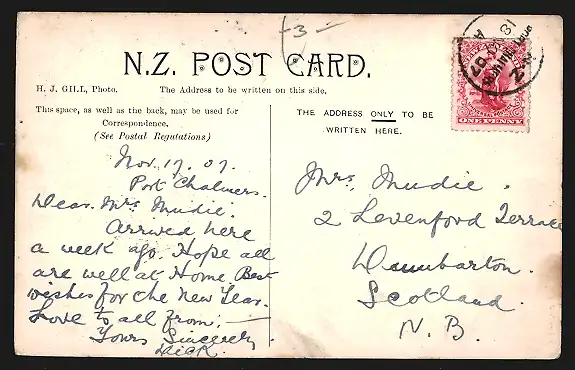 -3-
N.Z. POST CARD.
H. J. GILL, Photo.
The Address to be written on this side.
This space, as well as the back, may be used for
Correspondence.
(See Postal Regulations)
THE ADDRESS ONLY TO BE
WRITTEN HERE.
ONE PENNY
Nov. 17. 07.
Port Chalmers.
Dear Mrs Mudie.
Arrived here
a week ago. Hope all
are well at Home Best
wishes for the New Year.
Love to all from. —
Yours Sincerely
Dick.
Mrs. Mudie.
2 Levenford Terrace
Dumbarton.
Scotland.
N.B.